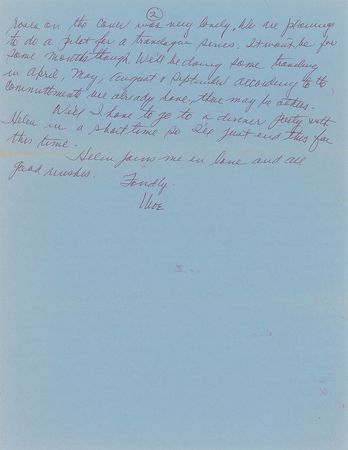 ②
on the Cover was very lovely. We are planning
to do a pilot for a travelogue series. It won't be for
some months though. Will be doing some traveling
in April, May, August & September according to the
committments we already have, there may be others.
Well I have to go to a dinner party with
Helen in a short time so I'll just end this for
this time.
Helen joins me in love and all
good wishes.
Fondly.